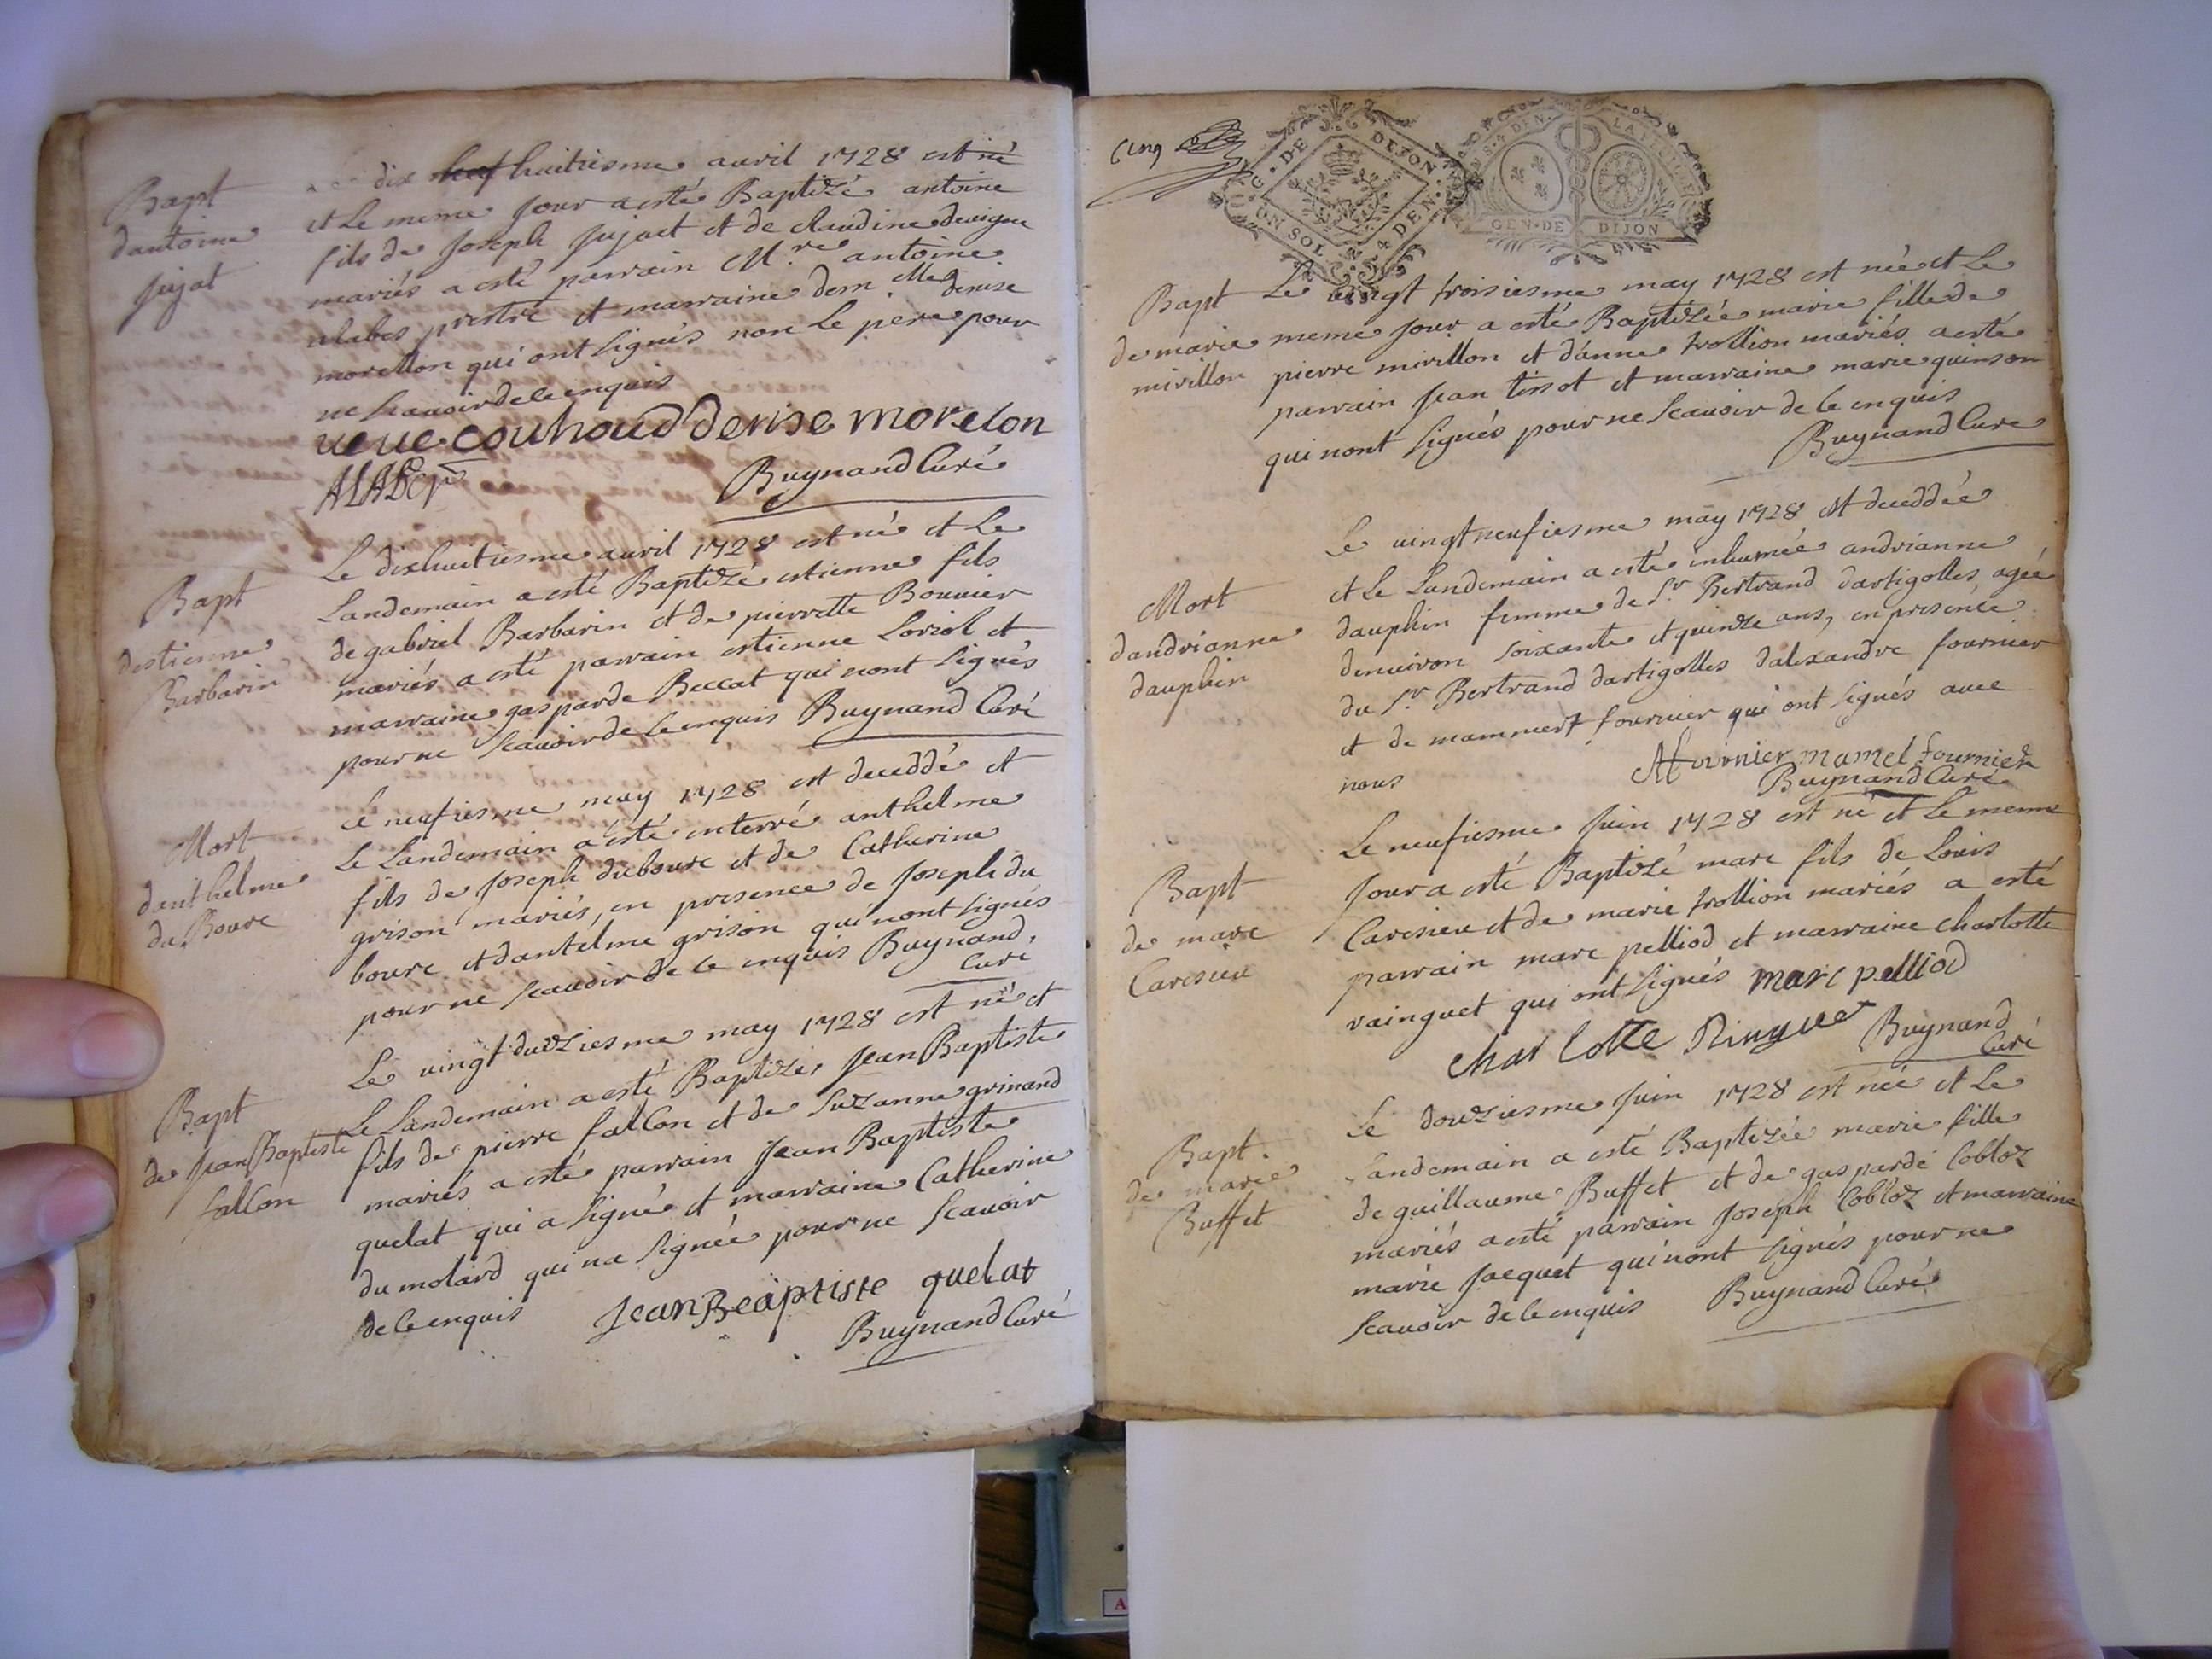 Bapt
dantoine
Jujat
dix huitiesme auril 1728 est né
et Le meme Jour a esté Baptizé antoine
fils de Joseph Jujat et de claudine deuigne
mariés a esté parrain M.re antoine
alabes prestre et marraine dem elle denise
morellon qui ont signés non Le pere pour
ne scauoir de ce enquis
ueue couhoud denise morelon
Buynand Curé
Bapt
destienne
Barbarin
Le dixhuitiesme auril 1728 est né et Le
Landemain a esté Baptizé estienne fils
de gabriel Barbarin et de pierrette Bouuier
mariés a esté parrain estienne Loriol et
marraine gasparde Beccat qui nont signés
pour ne scauoir de ce enquis Buynand Curé
Mort
danthelme
du Bourc
Le neufiesme may 1728 est deceddé et
Le Landemain a esté enterré anthelme
fils de Joseph dubourc et de Catherine
grison mariés, en presence de Joseph du
bourc et dantelme grison qui nont signés
pour ne scauoir de ce enquis Buynand
Curé
Bapt
de Jean Baptiste
fallon
Le uingt duxziesme may 1728 est né et
Le Landemain a esté Baptizé, Jean Baptiste
fils de pierre fallon et de suzanne grinand
mariés a esté parrain Jean Baptiste
quelat qui a signé et marraine Catherine
du molard qui na signée pour ne scauoir
de ce enquis
Jean Beaptiste quelat
Buynand Curé
Cinq
G. DE DIJON.
UN SOL N 4 DEN.
GEN. DE DIJON
Bapt
de marie
mirillon
Le uingt troisiesme may 1728 est née et Le
meme Jour a esté Baptizée marie fille de
pierre mirillon et d'anne trollion mariés a esté
parrain Jean tissot et marraine marie quinson
qui nont signés pour ne scauoir de ce enquis
Buynand Curé
Mort
dandrianne
dauphin
Le uingt neufiesme may 1728 est deceddée
et Le Landemain a esté inhumée andrianne
dauphin femme de S.r Bertrand dartigolles agée
denuiron soixante et quinze ans, en presence
du S.r Bertrand dartigolles dalexandre fournier
et de mammert fournier qui ont signés auec
nous
Afournier mamel fournier
Buynand Curé
Bapt
de marc
Caresieu
Le neufiesme Juin 1728 est né et Le meme
Jour a esté Baptizé marc fils de Louis
Caresieu et de marie trollion mariés a esté
parrain marc pelliod et marraine charlotte
rainguet qui ont signés marc pelliod
charlotte Ringuet
Buynand
Curé
Bapt.
de marie
Buffet
Le douziesme Juin 1728 est née et Le
Landemain a esté Baptizée marie fille
de guillaume Buffet et de gasparde Cobloz
mariés a esté parrain Joseph Cobloz et marraine
marie Jacquet qui nont signés pour ne
scauoir de ce enquis
Buynand Curé